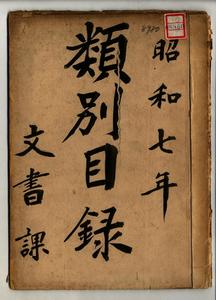 昭和七年
類別目録
文書課